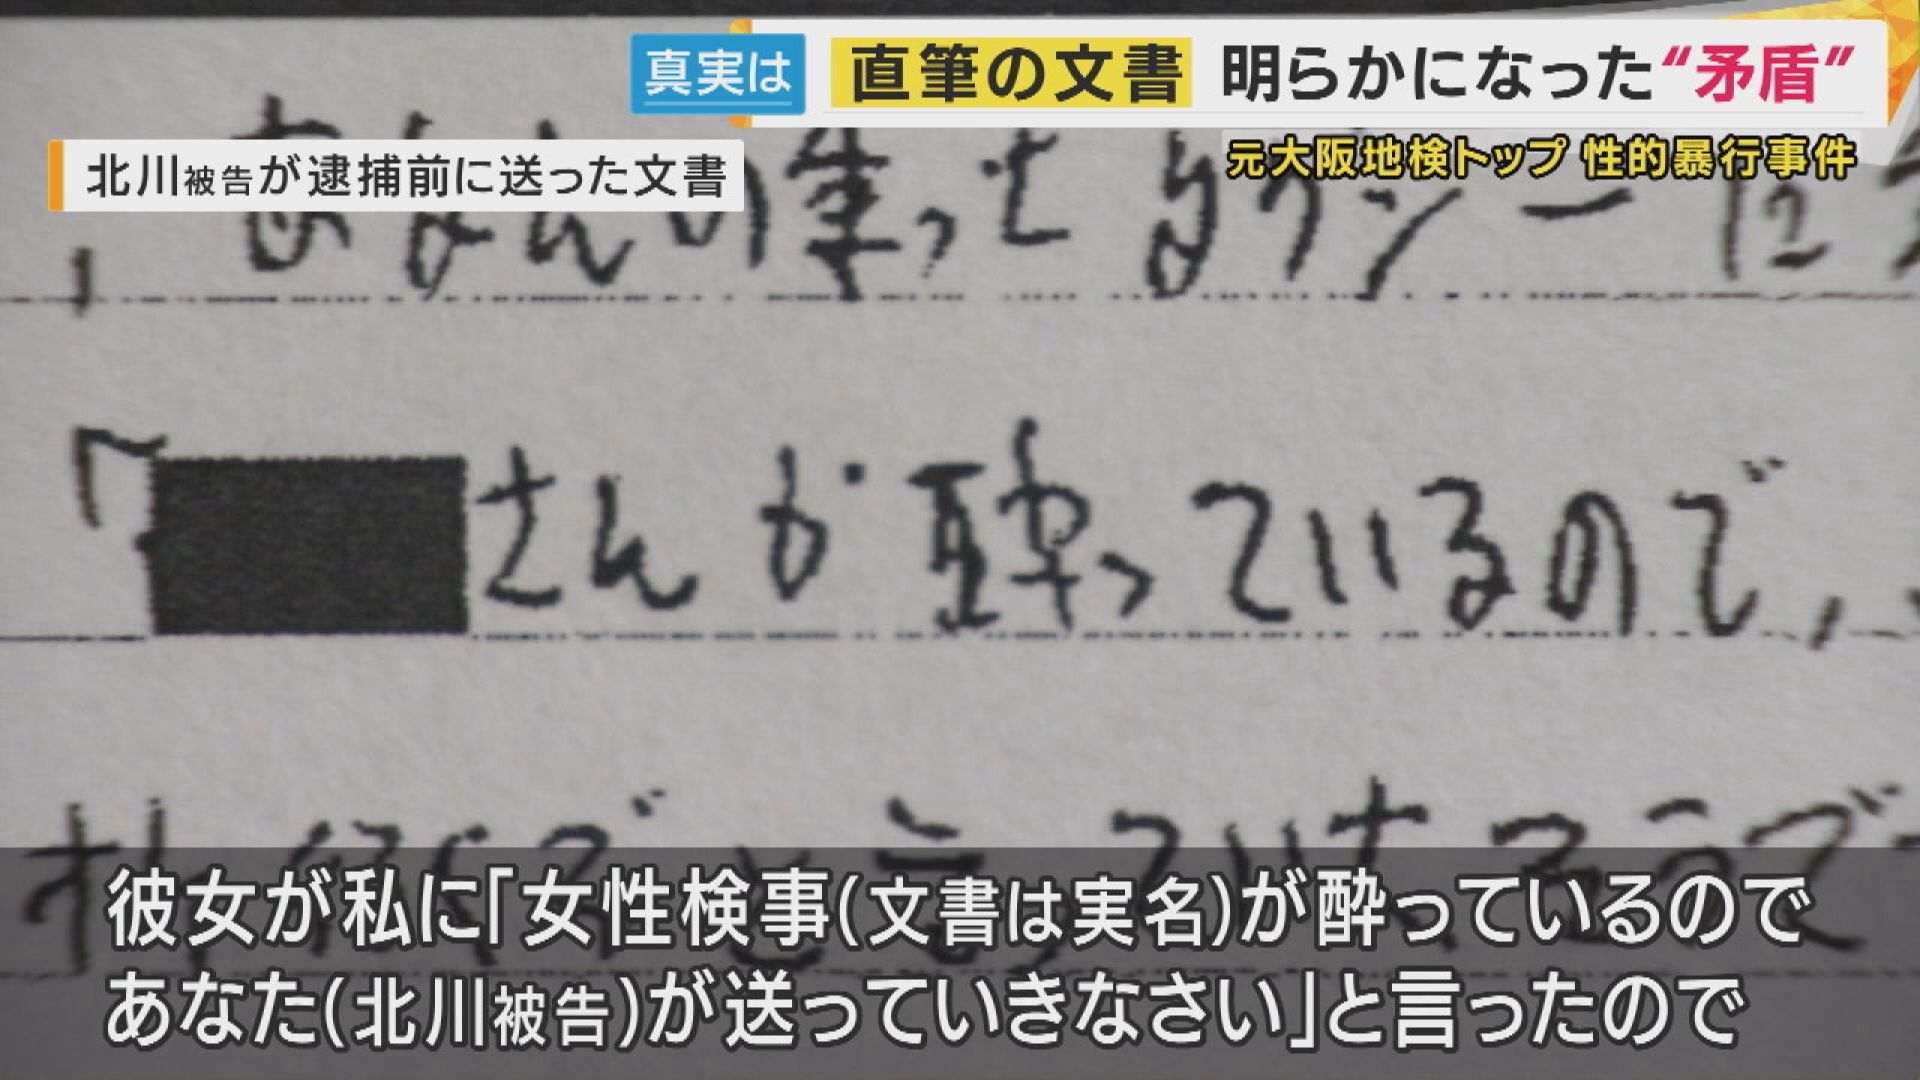 真実は 直筆の文書 明らかになった“矛盾”
元大阪地検トップ 性的暴行事件
北川被告が逮捕前に送った文書
さんが酔っているので,
彼女が私に「女性検事(文書は実名)が酔っているので
あなた(北川被告)が送っていきなさい」と言ったので